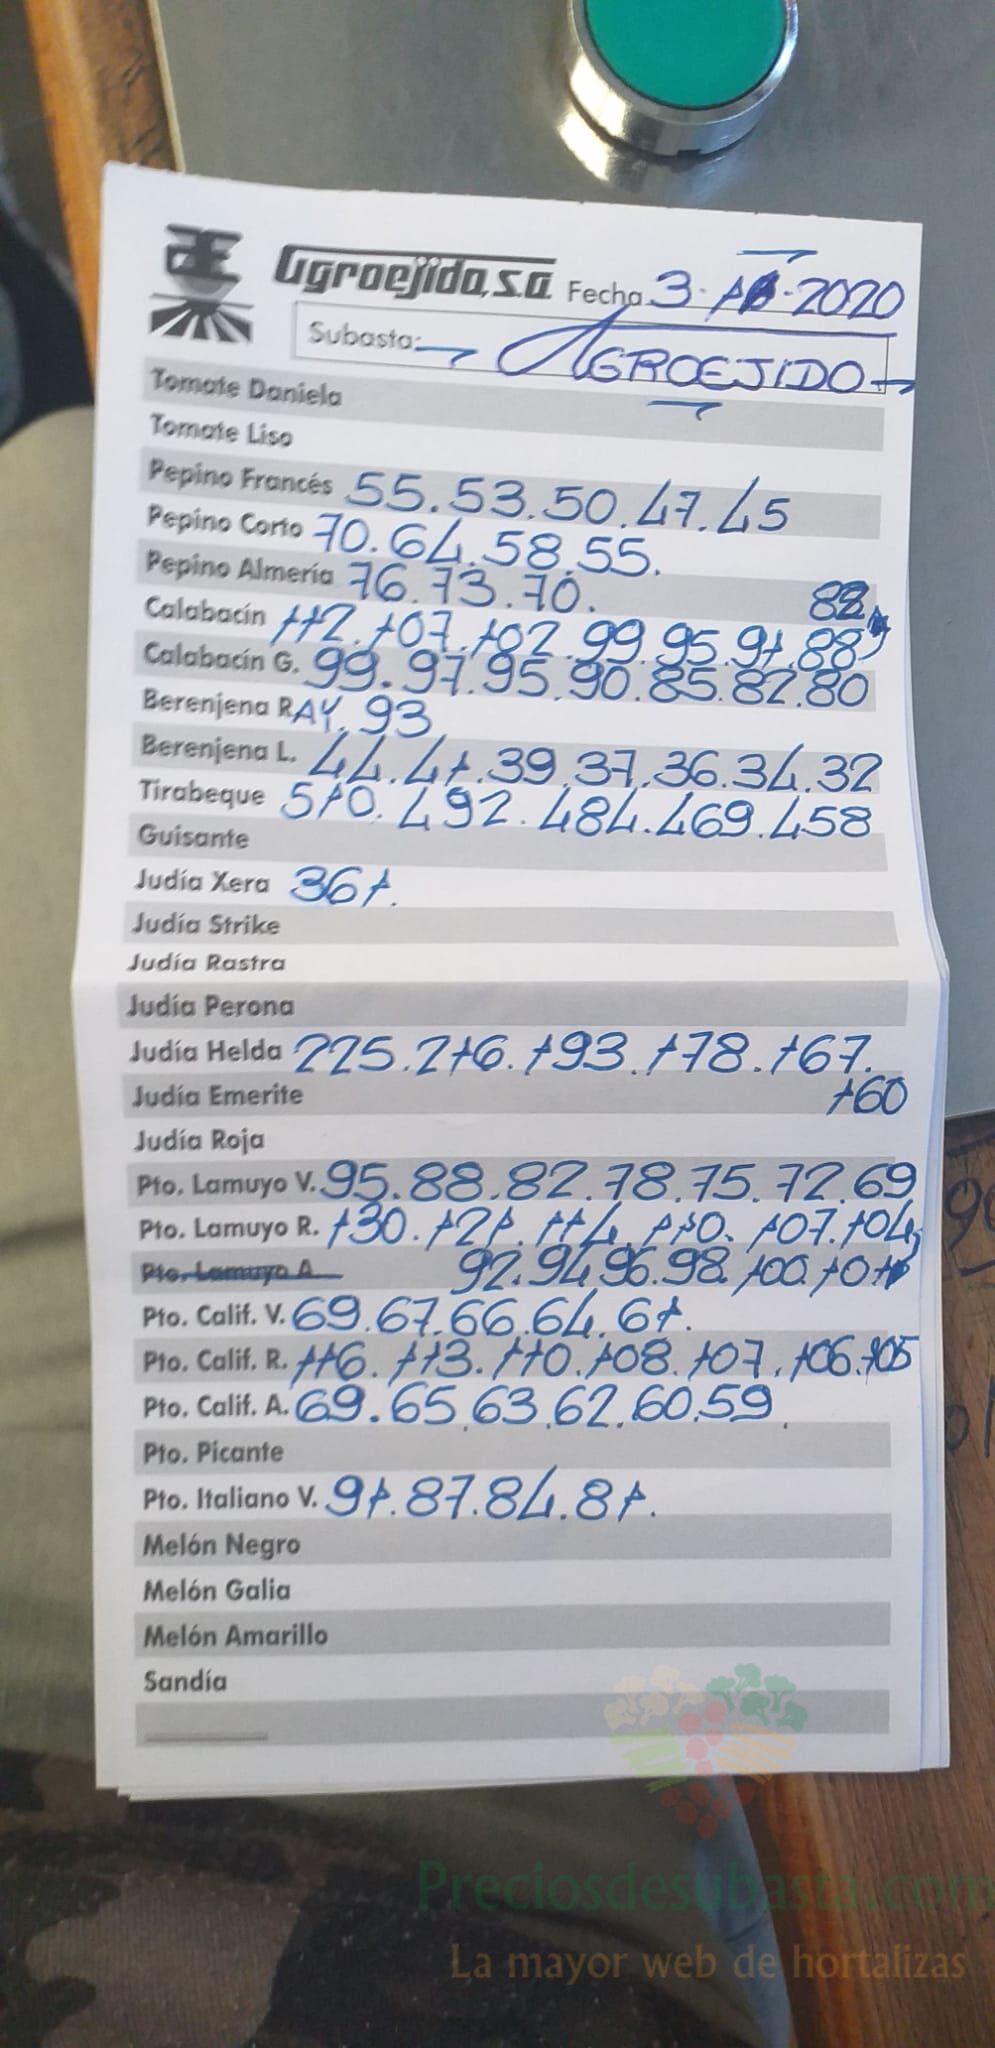 Agroejido, s.a. Fecha 3. .2020
Subasta: AGROEJIDO
Tomate Daniela
Tomate Liso
Pepino Francés 55.53.50.47.45
Pepino Corto 70.64.58.55.
Pepino Almería 76.73.70. 82
Calabacín 112.107.102.99.95.91.88
Calabacín G. 99.97.95.90.85.82.80
Berenjena RAY. 93
Berenjena L. 44.41.39.37.36.34.32
Tirabeque 510.492.484.469.458
Guisante
Judía Xera 361.
Judía Strike
Judía Rastra
Judía Perona
Judía Helda 225.216.193.178.167.
Judía Emerite 160
Judía Roja
Pto. Lamuyo V. 95.88.82.78.75.72.69
Pto. Lamuyo R. 130.121.114.110.107.104
Pto. Lamuyo A. 92.94.96.98.100.101
Pto. Calif. V. 69.67.66.64.61.
Pto. Calif. R. 116.113.110.108.107.106.105
Pto. Calif. A. 69.65.63.62.60.59.
Pto. Picante
Pto. Italiano V. 91.87.84.81.
Melón Negro
Melón Galia
Melón Amarillo
Sandía
Preciosdesubasta.com
La mayor web de hortalizas